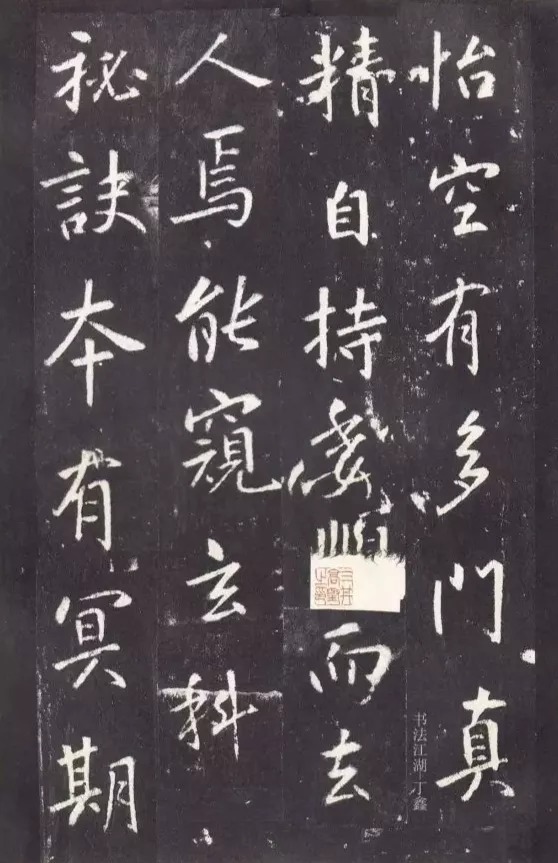 怡空有多門真
精自持委順而去
人焉能窺玄科
秘訣本有冥期
书法江湖 丁鑫